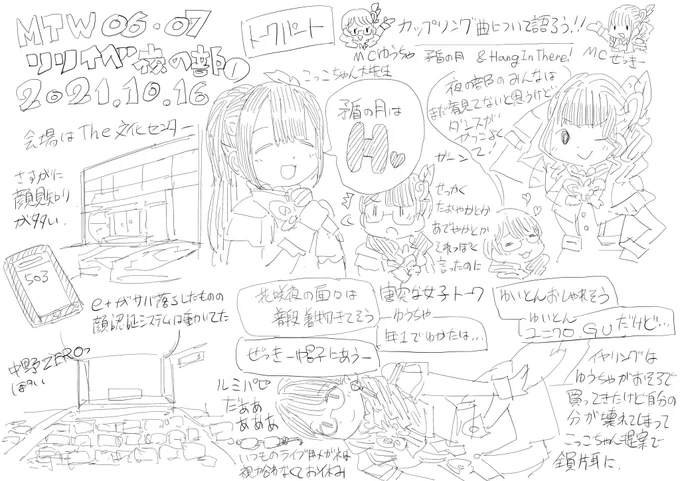 MTW 06・07
リリイベ 夜の部①
2021.10.16
会場はThe文化センター
さすがに
顔見知り
が多い
503
e+がサバ落ちしたものの
顔認証システムは動いてた
中野ZEROっ
ぽい
トークパート
カップリング曲について語ろう!!
MCゆうちゃ
矛盾の月 & Hang In There!
MCぜっきー
こっこちゃん大先生
矛盾の月は
H
夜の部のみんなは
まだ見てないと思うけど
ダンスが
かっこよく
て!
ガーン
せっかく
たおやかとか
あでやかとか
それっぽく
言ったのに
北咲夜の面々は
普段着物きてそう
ぜっきー帽子にあうー
ルミパ
たぁぁ
ぁぁぁ
いつものライブ用メガネは
視力合わなくておやすみ
重実な女子トーク
ゆうちゃ
年1でゆかたは…
ゆいとんおしゃれそう
ゆいとん
ユニクロ、GUだけど…
イヤリングは
ゆうちゃがおそろで
買ってきたけど自分の
分が壊れてしまって
こっこちゃん提案で
鎖片耳に